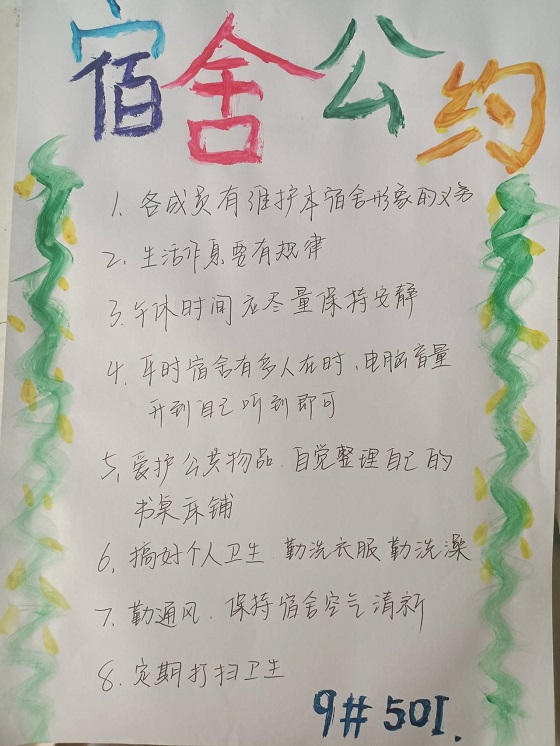 宿舍公约
1、各成员有维护本宿舍形象的义务
2、生活作息要有规律
3、午休时间应尽量保持安静
4、平时宿舍有多人在时、电脑音量
开到自己听到即可
5、爱护公共物品、自觉整理自己的
书桌床铺
6、搞好个人卫生 勤洗衣服勤洗澡
7、勤通风、保持宿舍空气清新
8、定期打扫卫生
9#501.